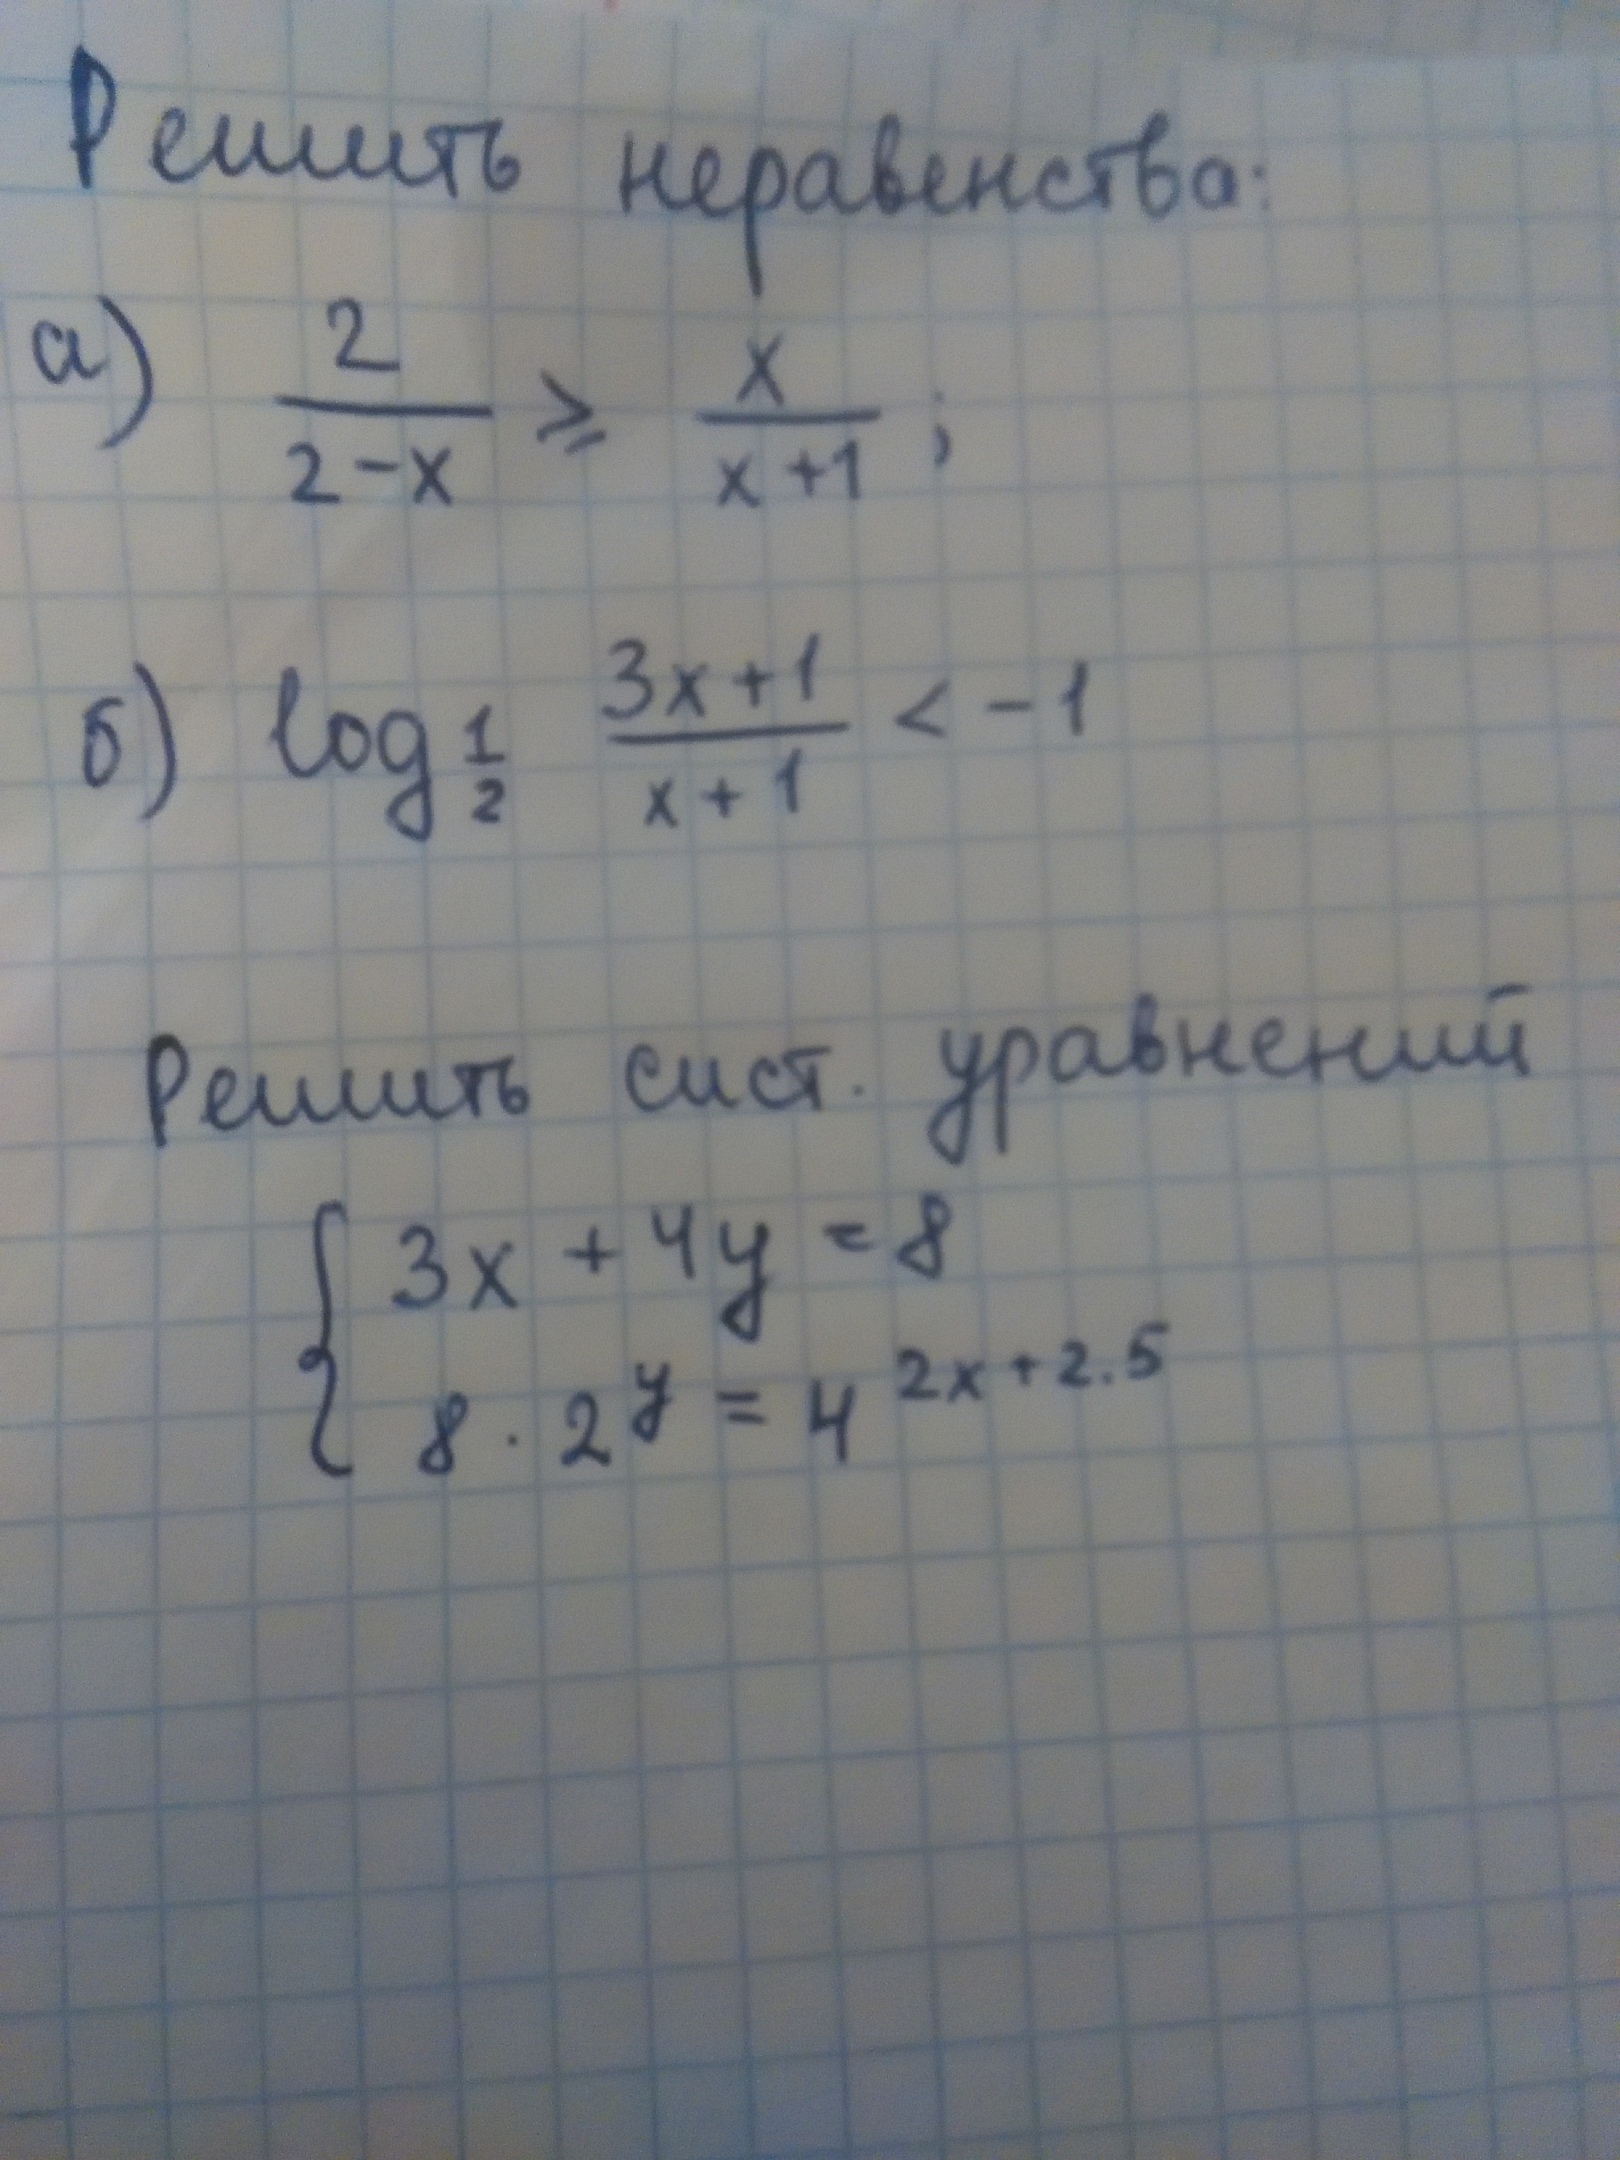 Решить неравенства:
а) 2/(2-x) ⩾ x/(x+1);
б) log_{1/2} (3x+1)/(x+1) < -1
Решить сист. уравнений
{ 3x + 4y = 8
8 · 2^y = 4^{2x+2.5}